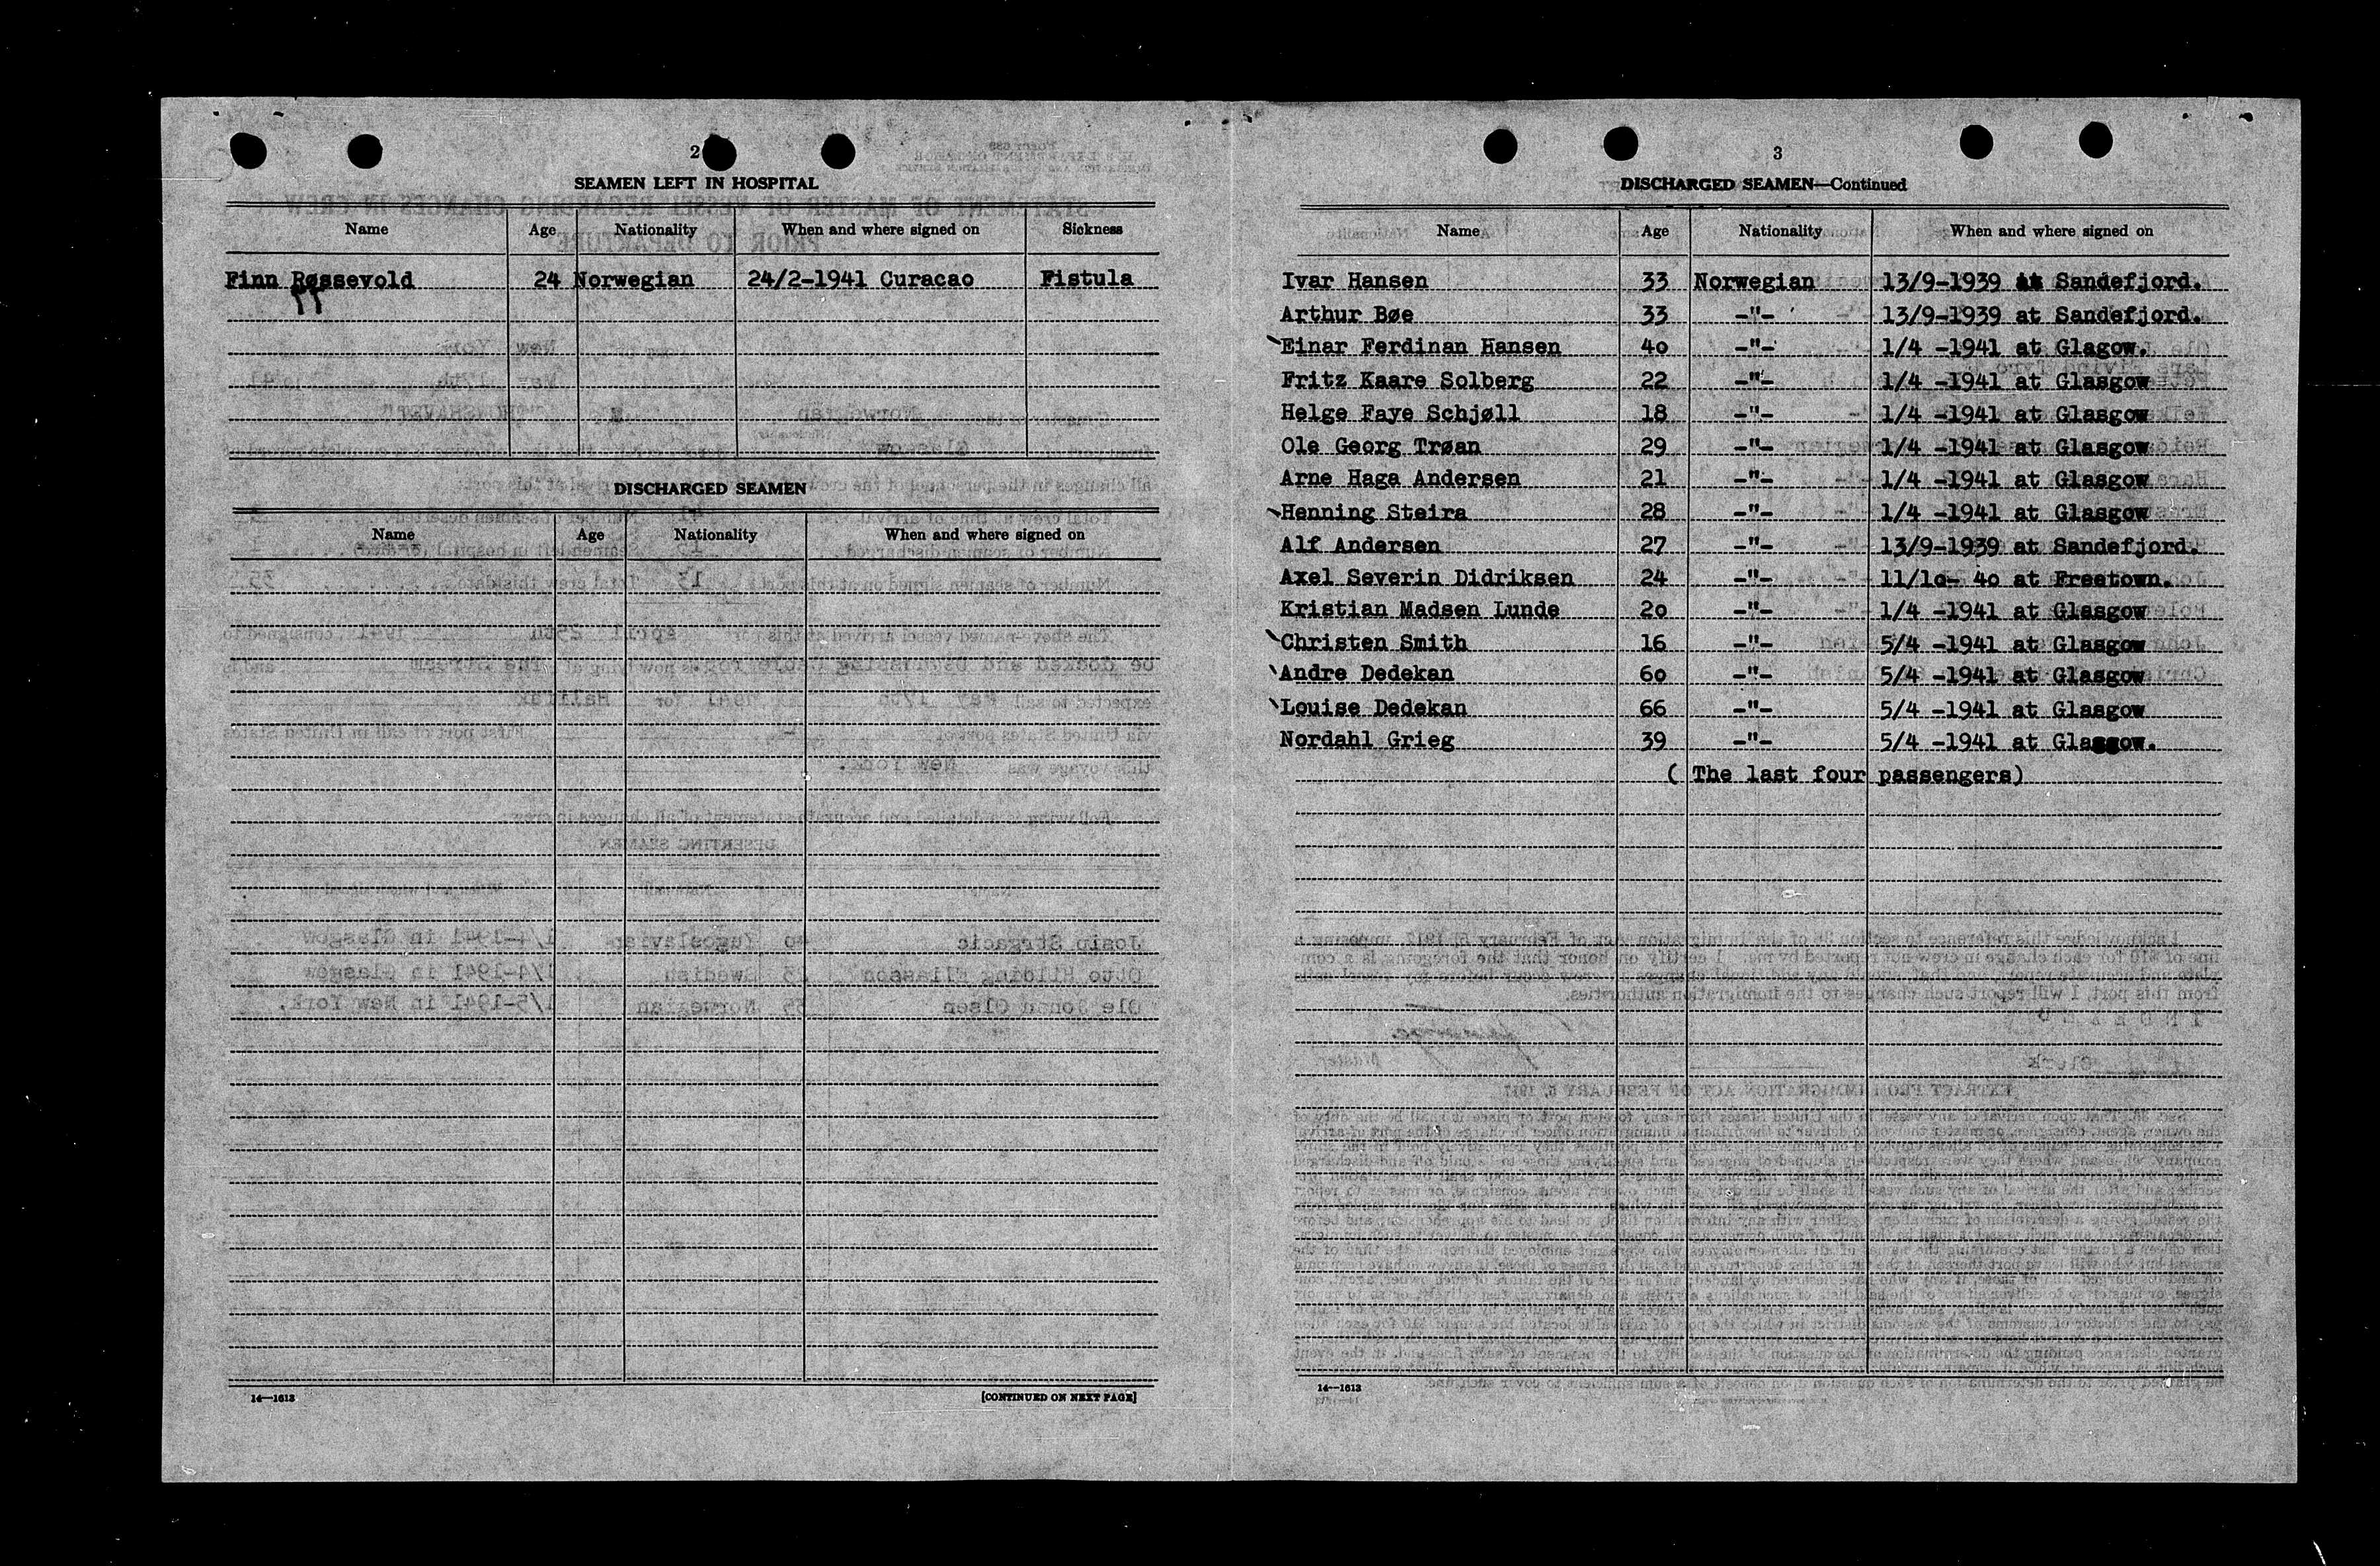 2
SEAMEN LEFT IN HOSPITAL
Name Age Nationality When and where signed on Sickness
Finn Røssevold 24 Norwegian 24/2-1941 Curacao Fistula
DISCHARGED SEAMEN
Name Age Nationality When and where signed on
14—1613 [CONTINUED ON NEXT PAGE]
3
DISCHARGED SEAMEN—Continued
Name Age Nationality When and where signed on
Ivar Hansen 33 Norwegian 13/9-1939 at Sandefjord.
Arthur Bøe 33 -"- 13/9-1939 at Sandefjord.
Einar Ferdinan Hansen 40 -"- 1/4 -1941 at Glagow.
Fritz Kaare Solberg 22 -"- 1/4 -1941 at Glasgow
Helge Faye Schjøll 18 -"- 1/4 -1941 at Glasgow
Ole Georg Trøan 29 -"- 1/4 -1941 at Glasgow
Arne Haga Andersen 21 -"- 1/4 -1941 at Glasgow
Henning Steira 28 -"- 1/4 -1941 at Glasgow
Alf Andersen 27 -"- 13/9-1939 at Sandefjord.
Axel Severin Didriksen 24 -"- 11/10- 40 at Freetown.
Kristian Madsen Lunde 20 -"- 1/4 -1941 at Glasgow
Christen Smith 16 -"- 5/4 -1941 at Glasgow
Andre Dedekan 60 -"- 5/4 -1941 at Glasgow
Louise Dedekan 66 -"- 5/4 -1941 at Glasgow
Nordahl Grieg 39 -"- 5/4 -1941 at Glasgow.
( The last four passengers)
14—1613